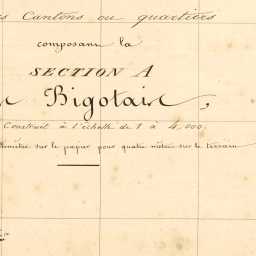 s Cantons ou quartiers
composant la
SECTION A
Bigotais,
Construit à l'échelle de 1 à 4,000.
sur le papier pour quatre mètres sur le terrain